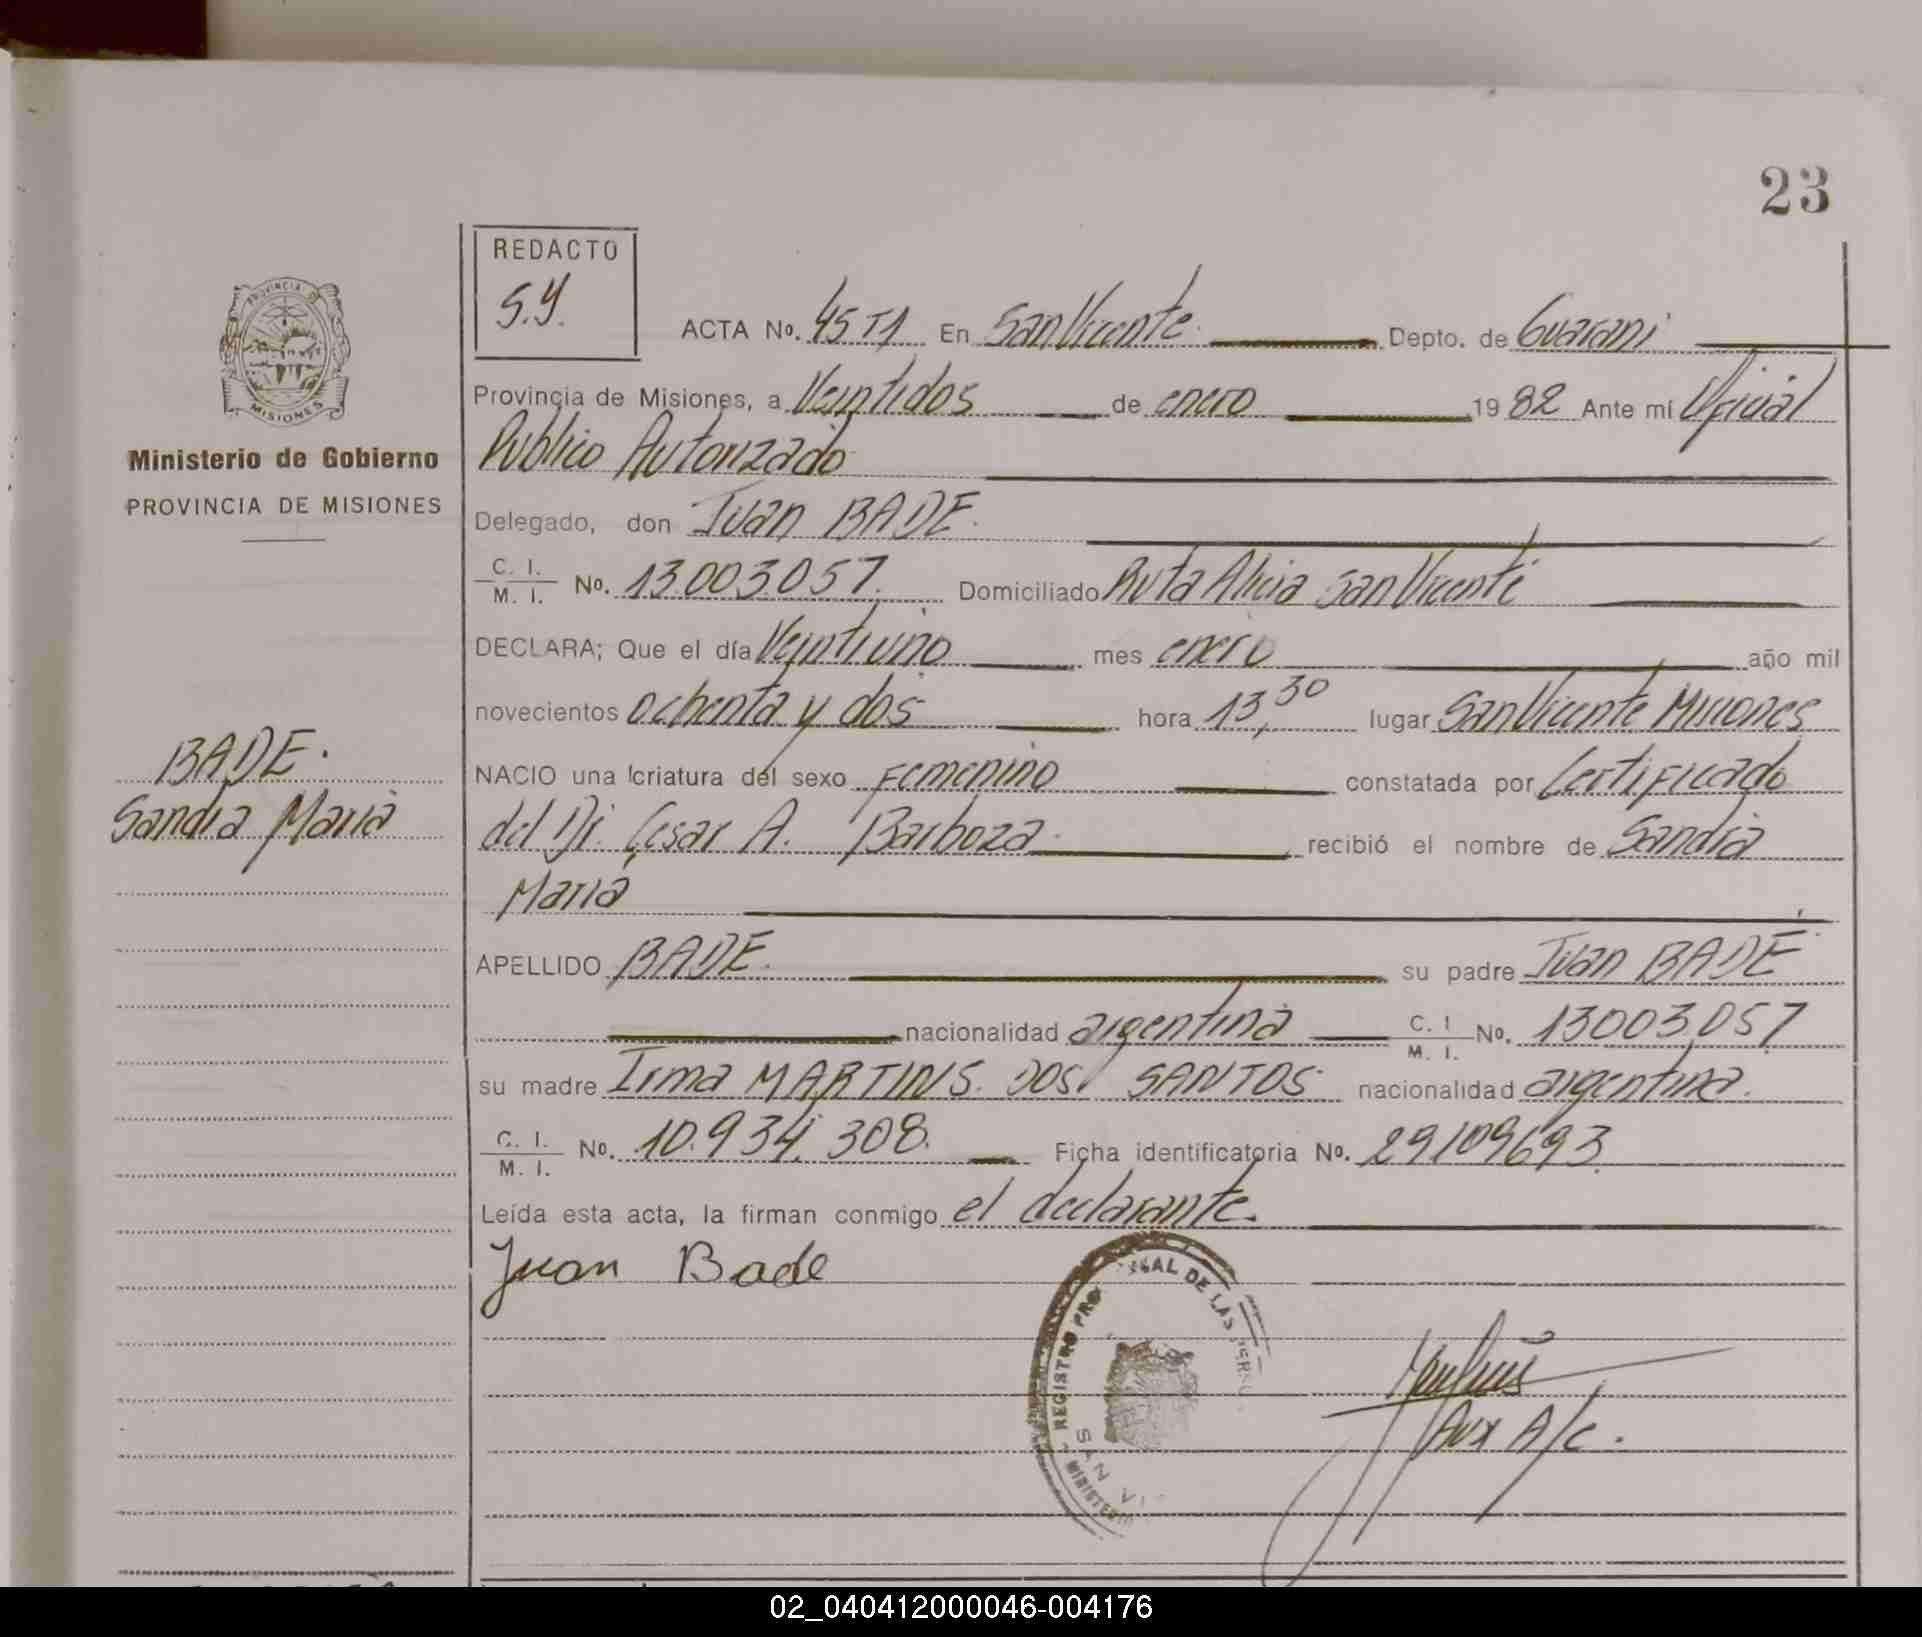 23
REDACTO
S.Y.
PROVINCIA D
MISIONES
Ministerio de Gobierno
PROVINCIA DE MISIONES
BADE.
Sandra Maria
ACTA No. 45 T1 En San Vicente. Depto. de Guarani
Provincia de Misiones, a Veintidos de enero 1982 Ante mi Oficial
Publico Autorizado
Delegado, don Juan BADE.
C. I. / M. I. No. 13.003.057. Domiciliado Ruta Alicia San Vicente
DECLARA; Que el día Veintiuno mes enero año mil
novecientos ochenta y dos hora 13,30 lugar San Vicente Misiones
NACIO una criatura del sexo Femenino constatada por Certificado
del Dr. Cesar A. Barboza. recibió el nombre de Sandra
Maria
APELLIDO BADE. su padre Juan BADE
nacionalidad argentina C. I / M. I. No. 13003.057
su madre Irma MARTINS DOS SANTOS nacionalidad argentina.
C. I. / M. I. No. 10.934.308. Ficha identificatoria No. 29109693
Leída esta acta, la firman conmigo el declarante.
Juan Bade
REGISTRO PRO DE LAS PERS
SAN VI
MINISTERIO
Aux A/c.
02_040412000046-004176